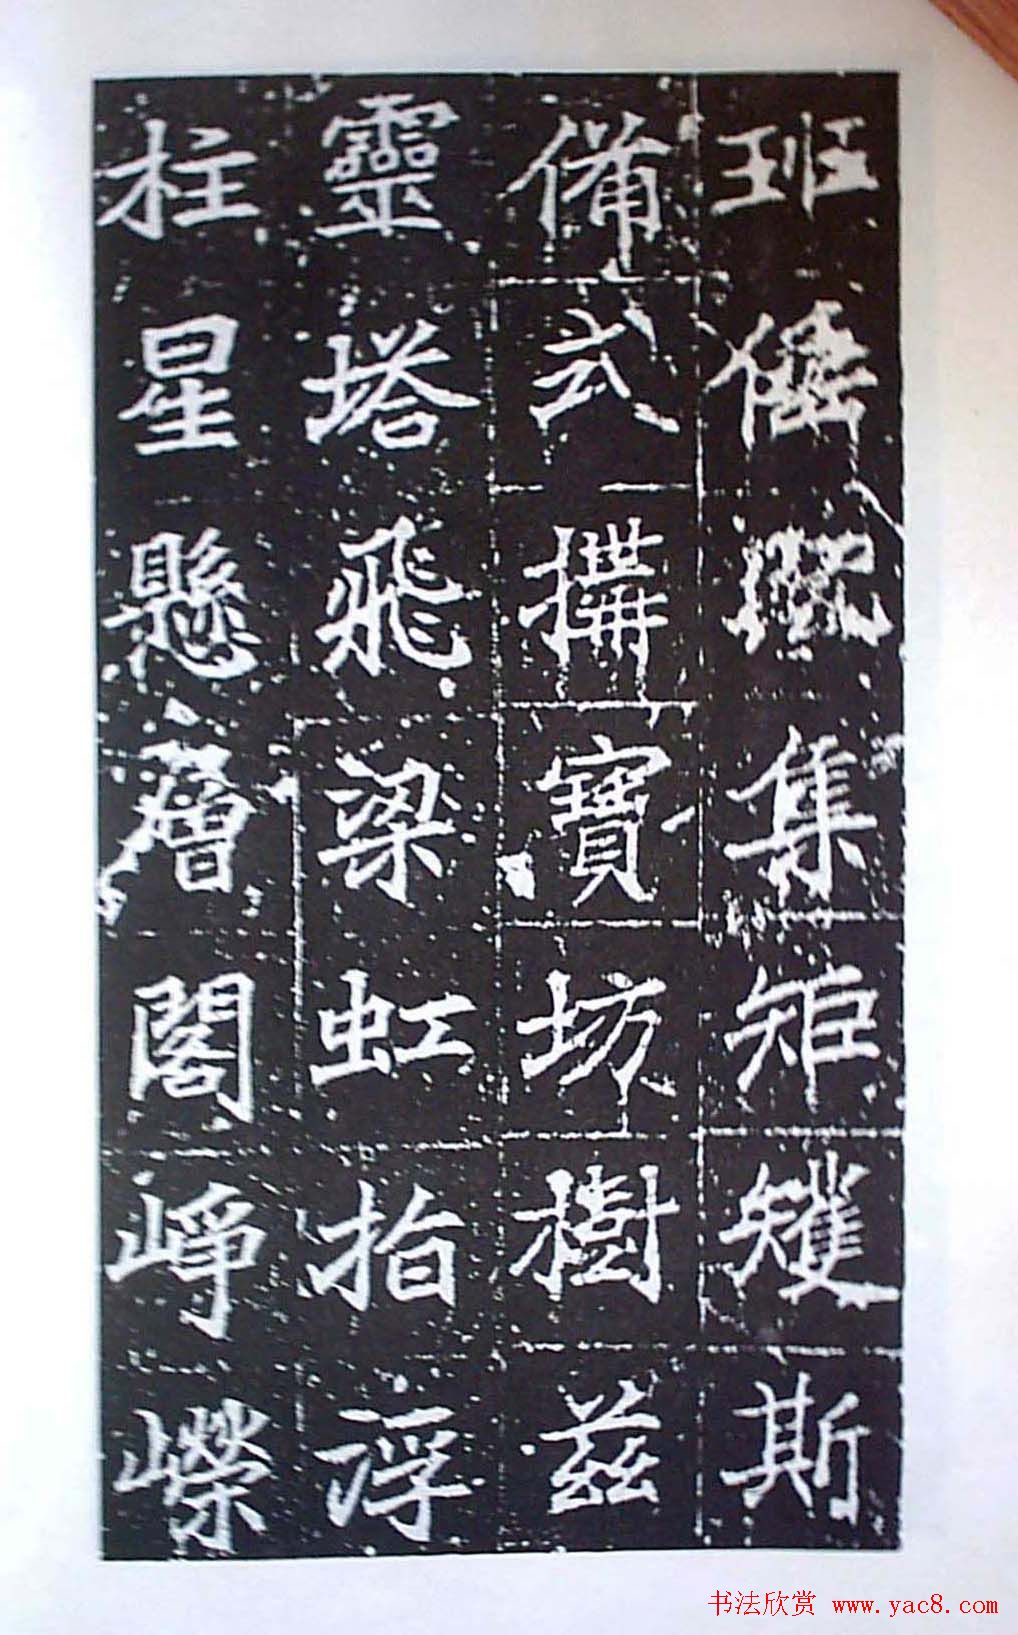 班倕既集矩矱斯
備式構寶坊樹茲
靈塔飛梁虹指浮
柱星懸層閣崢嶸
书法欣赏 www.yac8.com